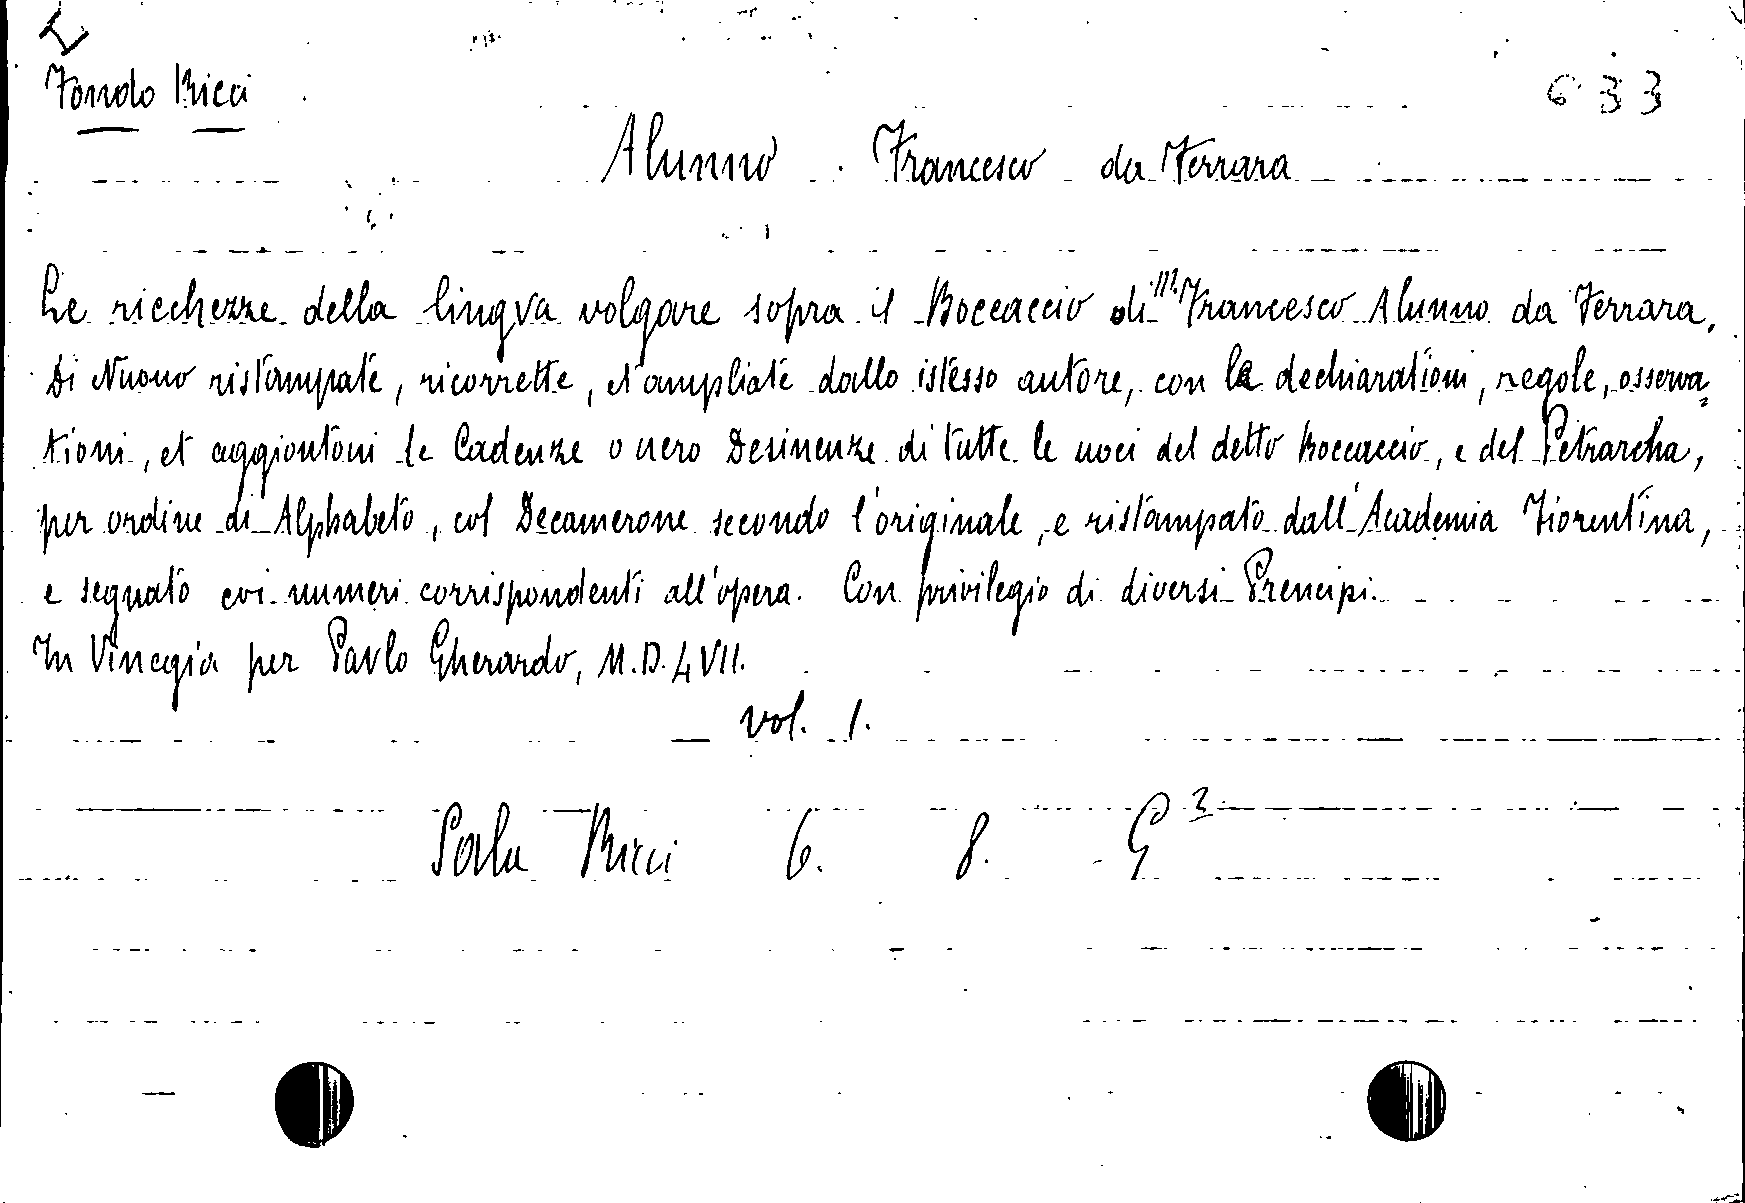 Fondo Ricci
633
Alunno Francesco da Ferrara
Le ricchezze della lingva volgare sopra il Boccaccio di M. Francesco Alunno da Ferrara,
Di Nuouo ristampate, ricorrette, et ampliate dallo istesso autore, con le dechiarationi, regole, osserua=
tioni, et aggiontoui le Cadenze o uero Desinenze di tutte le uoci del detto Boccaccio, e del Petrarcha,
per ordine di Alphabeto, col Decamerone secondo l'originale, e ristampato dall'Academia Fiorentina,
e segnato coi numeri corrispondenti all'opera. Con privilegio di diversi Prencipi.
In Vinegia per Pavlo Gherardo, M.D.LVII.
vol. 1.
Sala Ricci 6. 8. G²